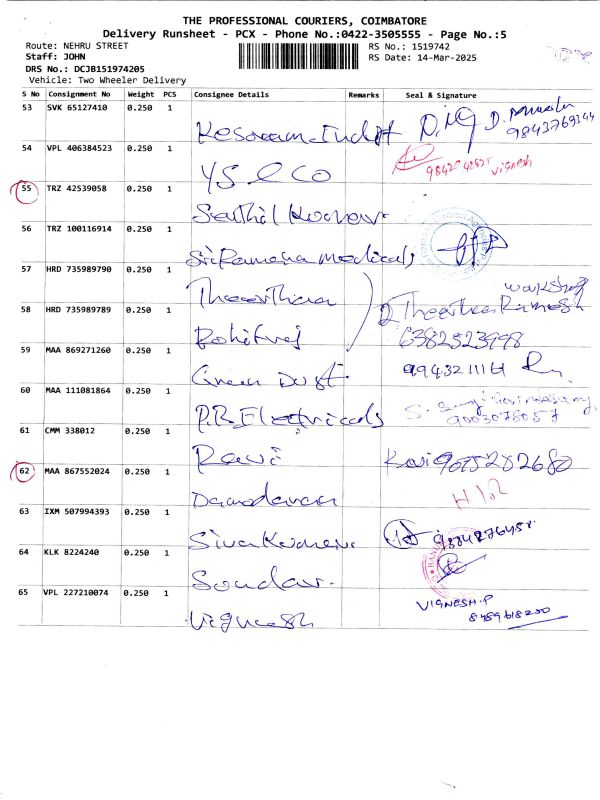 THE PROFESSIONAL COURIERS, COIMBATORE
Delivery Runsheet - PCX - Phone No.:0422-3505555 - Page No.:5
Route: NEHRU STREET RS No.: 1519742
Staff: JOHN RS Date: 14-Mar-2025
DRS No.: DCJB151974205
Vehicle: Two Wheeler Delivery
S No Consignment No Weight PCS Consignee Details Remarks Seal & Signature
53 SVK 65127410 0.250 1
9843769344
54 VPL 406384523 0.250 1 YS & Co
Vignesh
55 TRZ 42539058 0.250 1 Senthil Kumar.
56 TRZ 100116914 0.250 1 Sri Ramana medicals
57 HRD 735989790 0.250 1 Theerthana
58 HRD 735989789 0.250 1 Rohitraj
6382523998
59 MAA 869271260 0.250 1 Green Dust
60 MAA 111081864 0.250 1 P.R. Electricals
9003078057
61 CMM 338012 0.250 1 Ravi
9015282680
62 MAA 867552024 0.250 1 Damodaran
63 IXM 507994393 0.250 1 Siva Kumar.
64 KLK 8224240 0.250 1 Soudar.
65 VPL 227210074 0.250 1 Vignesh
VIGNESH.P
8489618200